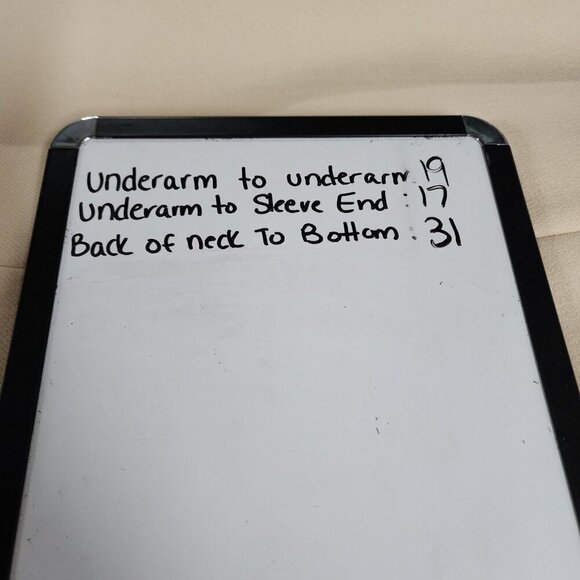 Underarm to underarm 19
Underarm to Sleeve End : 17
Back of neck To Bottom : 31